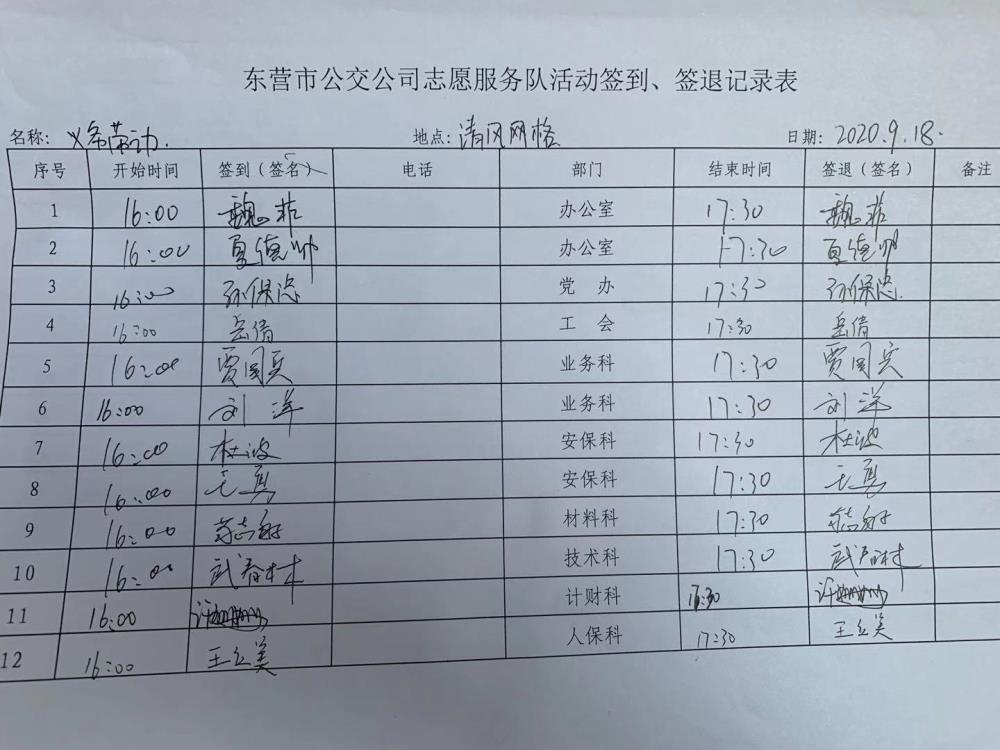 东营市公交公司志愿服务队活动签到、签退记录表
名称：义务劳动. 地点：清风网格 日期：2020.9.18.
序号 开始时间 签到（签名） 电话 部门 结束时间 签退（签名） 备注
1 16:00 魏菲 办公室 17:30 魏菲
2 16:00 夏德帅 办公室 17:30 夏德帅
3 16:00 孙保忠 党 办 17:30 孙保忠
4 16:00 岳倩 工 会 17:30 岳倩
5 16:00 贾国宾 业务科 17:30 贾国宾
6 16:00 刘洋 业务科 17:30 刘洋
7 16:00 杜波 安保科 17:30 杜波
8 16:00 王勇 安保科 17:30 王勇
9 16:00 材料科 17:30
10 16:00 武春村 技术科 17:30 武春村
11 16:00 计财科 17:30
12 16:00 王立美 人保科 17:30 王立美